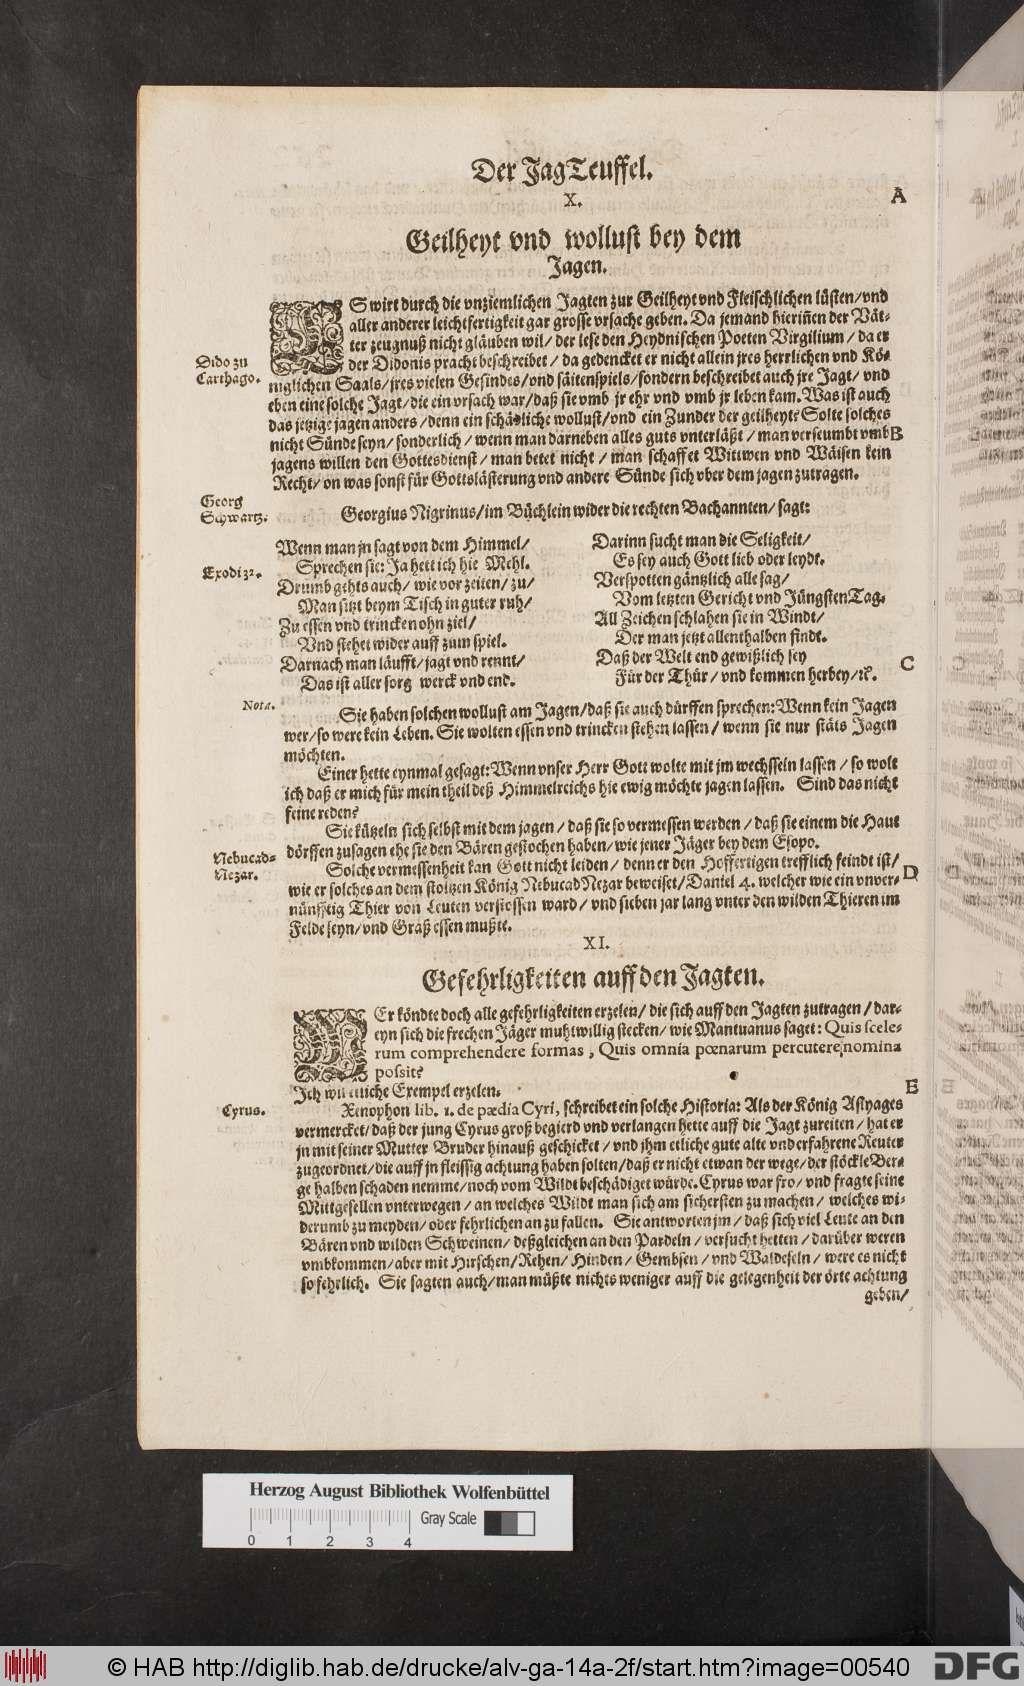 Der JagTeuffel.
X.
A
Geilheyt vnd wollust bey dem
Jagen.
ES wirt durch die vnziemlichen Jagten zur Geilheyt vnd Fleischlichen lüsten/vnd
aller anderer leichtfertigkeit gar grosse vrsache geben. Da jemand hieriñen der Vät-
ter zeugnuß nicht gläuben wil/ der lese den Heydnischen Poeten Virgilium/ da er
der Didonis pracht beschreibet/ da gedencket er nicht allein jres herrlichen vnd Kö-
Dido zu
Carthago.
niglichen Saals/jres vielen Gesindes/vnd säitenspiels/sondern beschreibet auch jre Jagt/ vnd
eben eine solche Jagt/die ein vrsach war/daß sie vmb jr ehr vnd vmb jr leben kam. Was ist auch
das jetzige jagen anders/denn ein schädliche wollust/vnd ein Zunder der geilheyt? Solte solches
nicht Sünde seyn/sonderlich/wenn man darneben alles guts vnterläßt/man verseumbt vmb
B
jagens willen den Gottesdienst/ man betet nicht/ man schaffet Wittwen vnd Wäisen kein
Recht/on was sonst für Gottslästerung vnd andere Sünde sich vber dem jagen zutragen.
Georg
Schwartz.
Georgius Nigrinus/im Büchlein wider die rechten Bachannten/sagt:
Wenn man jn sagt von dem Himmel/
Sprechen sie: Ja hett ich hie Mehl.
Exodi 32.
Drumb gehts auch/ wie vor zeiten/ zu/
Man sitzt beym Tisch in guter ruh/
Zu essen vnd trincken ohn ziel/
Vnd stehet wider auff zum spiel.
Darnach man läufft/jagt vnd rennt/
Das ist aller sorg werck vnd end.
Darinn sucht man die Seligkeit/
Es sey auch Gott lieb oder leydt.
Verspotten gäntzlich alle sag/
Vom letzten Gericht vnd Jüngsten Tag.
All Zeichen schlahen sie in Windt/
Der man jetzt allenthalben findt.
Daß der Welt end gewißlich sey
Für der Thür/ vnd kommen herbey/ꝛc.
C
Nota.
Sie haben solchen wollust am Jagen/daß sie auch dürffen sprechen: Wenn kein Jagen
wer/so were kein Leben. Sie wolten essen vnd trincken stehen lassen/ wenn sie nur stäts Jagen
möchten.
Einer hette eynmal gesagt: Wenn vnser Herr Gott wolte mit jm wechsseln lassen/ so wolt
ich daß er mich für mein theil deß Himmelreichs hie ewig möchte jagen lassen. Sind das nicht
feine reden?
Sie kützeln sich selbst mit dem jagen/ daß sie so vermessen werden/ daß sie einem die Haut
dörffen zusagen ehe sie den Bären gestochen haben/wie jener Jäger bey dem Esopo.
Nebucad-
Nezar.
Solche vermessenheit kan Gott nicht leiden/ denn er den Hoffertigen trefflich feindt ist/
D
wie er solches an dem stoltzen König NebucadNezar beweiset/Daniel 4. welcher wie ein vnver-
nünfftig Thier von Leuten verstossen ward/ vnd sieben jar lang vnter den wilden Thieren im
Felde seyn/vnd Graß essen mußte.
XI.
Gefehrligkeiten auff den Jagten.
WEr köndte doch alle gefehrligkeiten erzelen/ die sich auff den Jagten zutragen/ dar-
eyn sich die frechen Jäger muhtwillig stecken/ wie Mantuanus saget: Quis scele-
rum comprehendere formas, Quis omnia pœnarum percutere nomina
possit?
Ich wil etliche Exempel erzelen.
E
Cyrus.
Xenophon lib. 1. de pædia Cyri, schreibet ein solche Historia: Als der König Astyages
vermercket/daß der jung Cyrus groß begierd vnd verlangen hette auff die Jagt zureiten/ hat er
jn mit seiner Mutter Bruder hinauß geschicket/ vnd jhm etliche gute alte vnd erfahrene Reuter
zugeordnet/die auff jn fleissig achtung haben solten/daß er nicht etwan der wege/der stöckle Ber-
ge halben schaden nemme/noch vom Wildt beschädiget würde. Cyrus war fro/ vnd fragte seine
Mittgesellen vnterwegen/ an welches Wildt man sich am sichersten zu machen/ welches wi-
derumb zu meyden/oder fehrlichen an zu fallen. Sie antworten jm/ daß sich viel Leute an den
Bären vnd wilden Schweinen/ deßgleichen an den Pardeln/ versucht hetten/ darüber weren
vmbkommen/aber mit Hirschen/Rehen/ Hinden/ Gembsen/ vnd Waldeseln/ were es nicht
so fehrlich. Sie sagten auch/man müßte nichts weniger auff die gelegenheit der örte achtung
geben/
Herzog August Bibliothek Wolfenbüttel
Gray Scale
0 1 2 3 4
© HAB http://diglib.hab.de/drucke/alv-ga-14a-2f/start.htm?image=00540
DFG